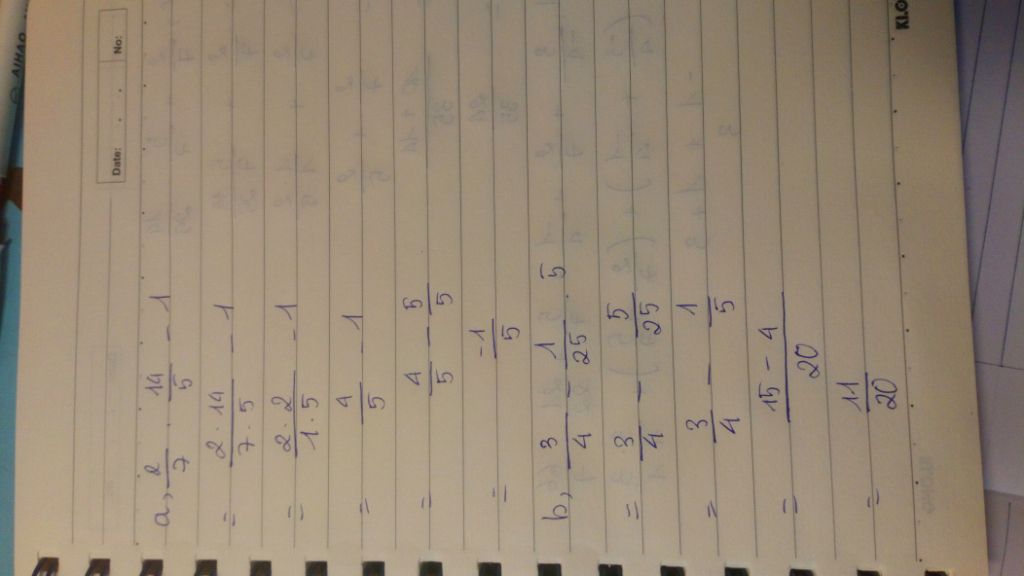 No:
Date: . .
a, 2/7 . 14/5 - 1
= 2 . 14 / 7 . 5 - 1
= 2 . 2 / 1 . 5 - 1
= 4/5 - 1
= 4/5 - 5/5
= -1/5
b, 3/4 - 1/25 . 5
= 3/4 - 5/25
= 3/4 - 1/5
= 15 - 4 / 20
= 11/20
KLO